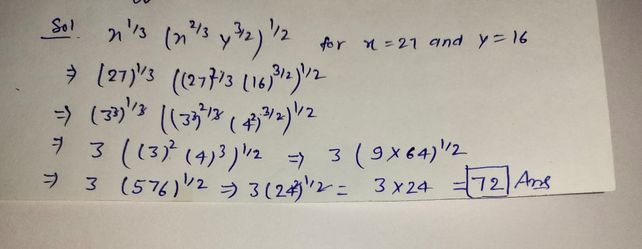 Sol x^1/3 (x^2/3 y^3/2)^1/2 for x = 27 and y = 16
⇒ (27)^1/3 ((27)^2/3 (16)^3/2)^1/2
⇒ (3^3)^1/3 ((3^3)^2/3 (4^2)^3/2)^1/2
⇒ 3 ((3)^2 (4)^3)^1/2 ⇒ 3 (9×64)^1/2
⇒ 3 (576)^1/2 ⇒ 3(24^2)^1/2 = 3×24 = 72 Ans